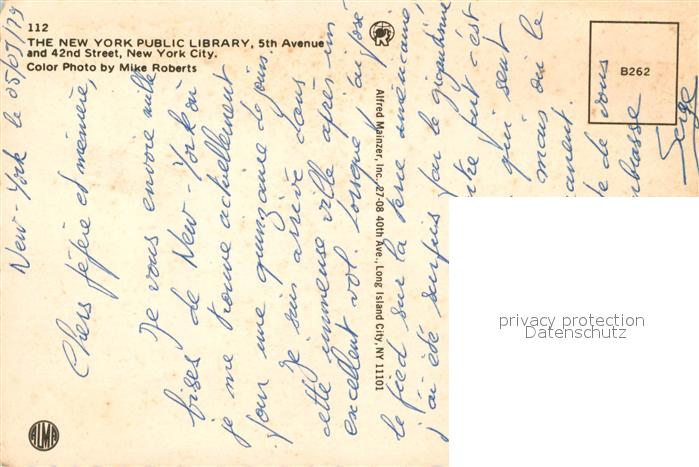 112
THE NEW YORK PUBLIC LIBRARY, 5th Avenue
and 42nd Street, New York City.
Color Photo by Mike Roberts
B262
Alfred Mainzer, Inc. 27-08 40th Ave., Long Island City, NY 11101
ALMA
New-York le 05/07/79
Chers pépère et mémère,
Je vous envoie mille
bises de New-York où
je me trouve actuellement
pour une quinzaine de jours
Je suis arrivé dans
cette immense ville après un
excellent vol. Lorsque j'ai posé
le pied sur la terre américaine,
j'ai été surpris par le gigantisme
tout c'est
qui sent
mais où le
de vous
embrasse
Serge
privacy protection
Datenschutz